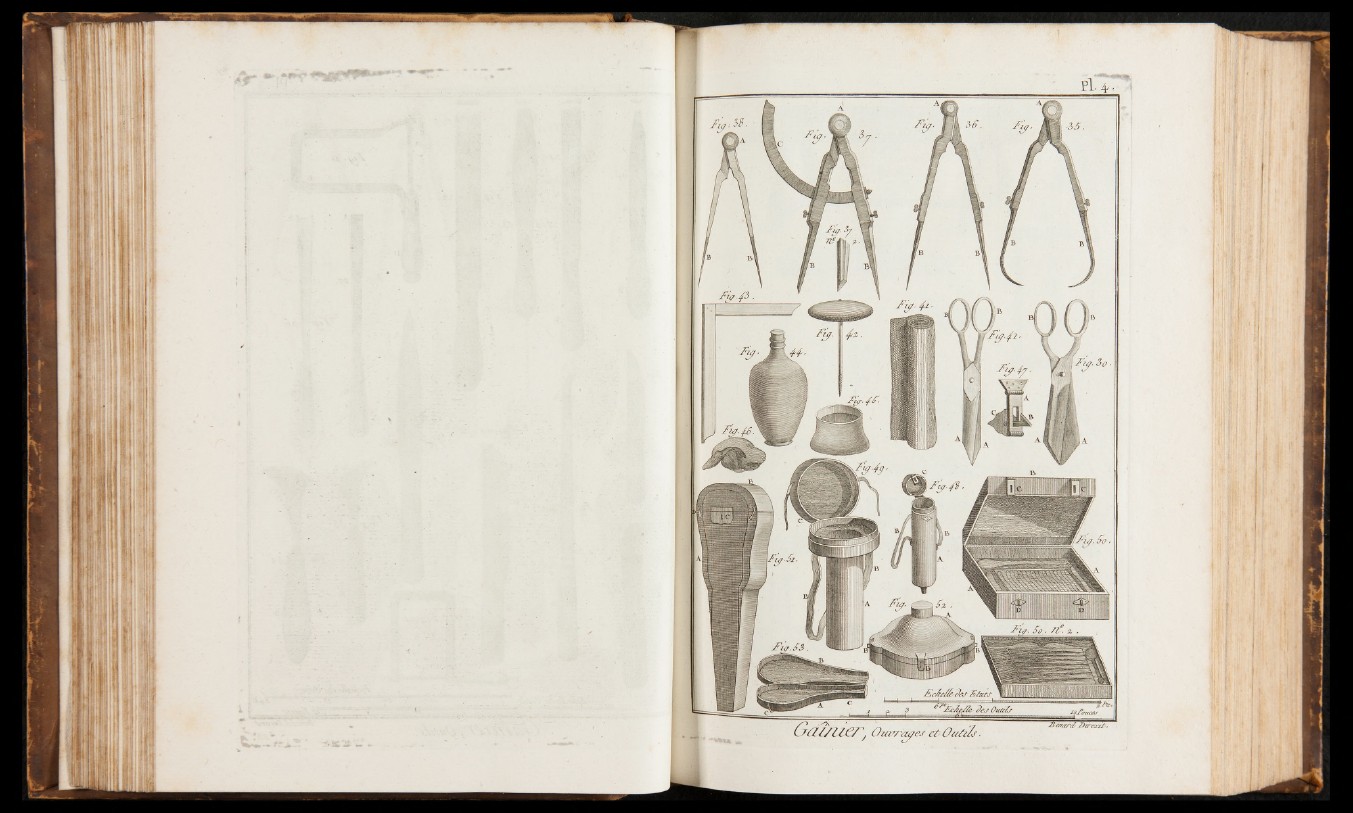 Pl. 4.
Fig. 38.
A
B
B
C
Fig. 37.
A
B
B
Fig. 37
N.º 2.
Fig. 36.
A
B
B
Fig. 35.
A
B
B
Fig. 43.
Fig. 44.
Fig. 42.
Fig. 41.
Fig. 41.
B
B
C
A
A
Fig. 47.
A
B
C
Fig. 39.
B
B
A
A
Fig. 45.
Fig. 46.
Fig. 49.
C
B
B
A
Fig. 48.
C
B
B
A
B
C
C
Fig. 50.
A
A
D
D
B
C
A
Fig. 51.
Fig. 52.
A
B
B
D
Fig. 50. N.º 2.
Fig. 53.
B
A
C
C
Echelle des Etuis
2 Pi.
1 2 3 6 P.
Echelle des Outils
12 Pouces
Benard Direxit.
Gaînier, Ouvrages et Outils.